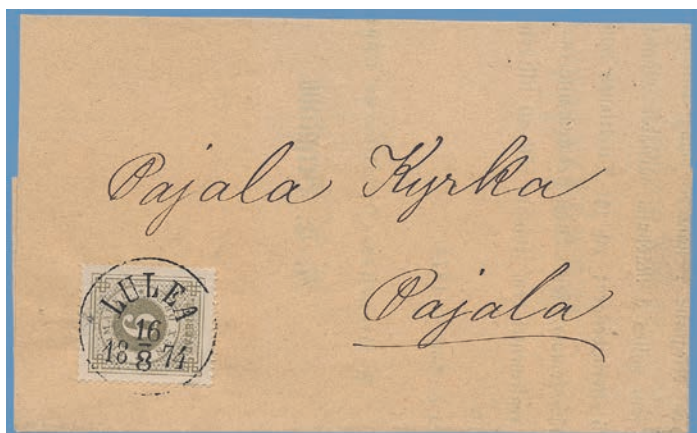 Pajala Kyrka
Pajala
LULEA
16
18 8 74
6